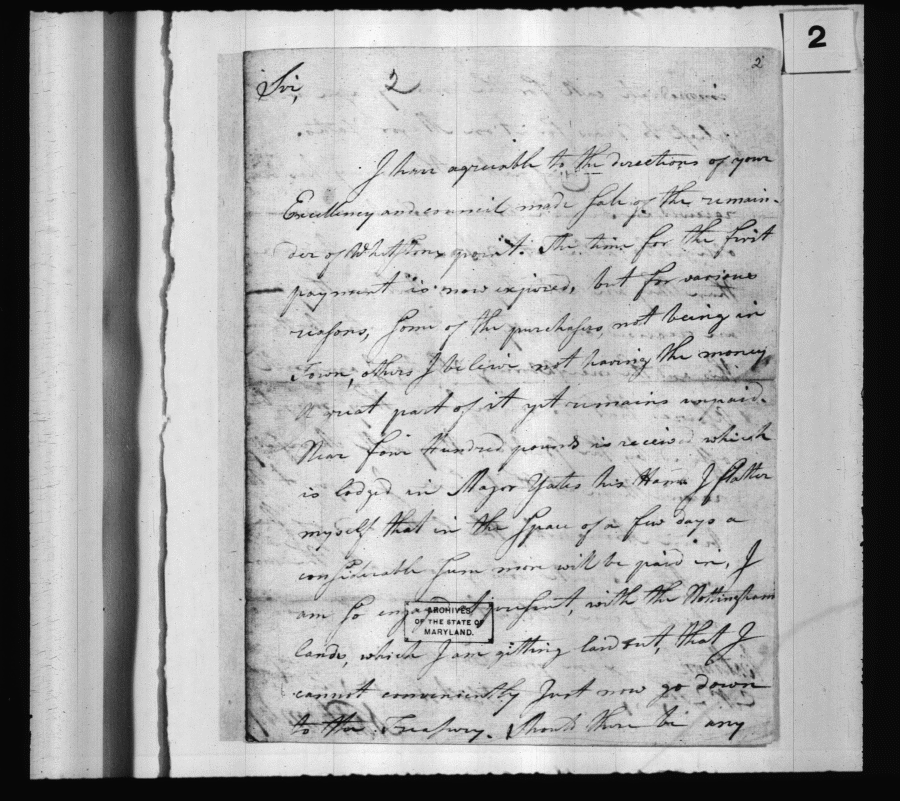 2
2
Sir,
2
I have agreable to the directions of your
Excellency and council made sale of the remain-
der of Whetstone point. The time for the first
payment is now expired, but for various
reasons, some of the purchasers, not being in
Town, others I beleive not having the money
a great part of it yet remains unpaid.
Near four Hundred pounds is received which
is lodged in Major Yates his Hands I flatter
myself that in the space of a few days a
considerable sum more will be paid in, I
am so engaged at present, with the Nottingham
lands, which I am gitting laid out, that I
cannot conveniently Just now go down
to the Treasury. Should there be any
ARCHIVES
OF THE STATE OF
MARYLAND.